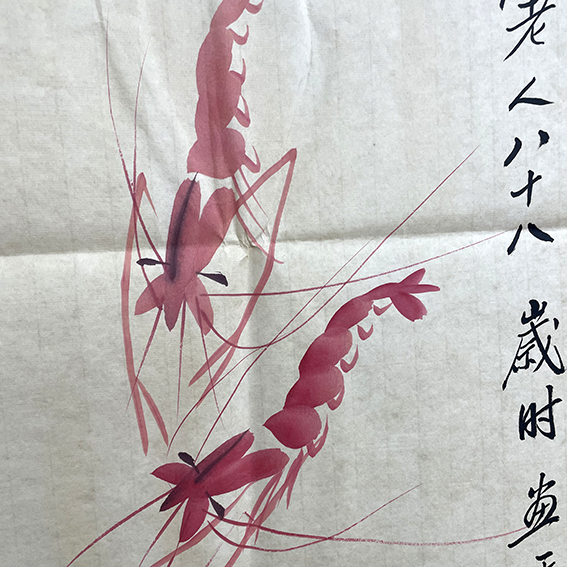 老人八十八歲时画